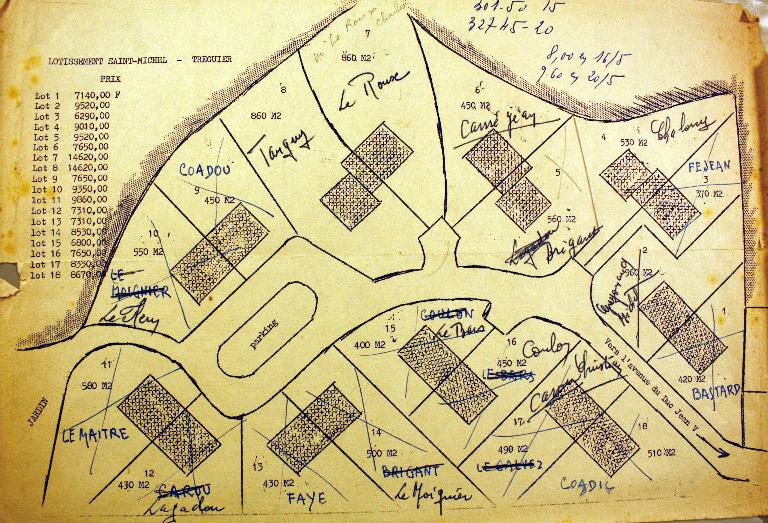 301-50 15
32745-20
8,00 y 16/5
960 y 20/5
LOTISSEMENT SAINT-MICHEL - TREGUIER
PRIX
Lot 1 7140,00 F
Lot 2 9520,00
Lot 3 6290,00
Lot 4 9010,00
Lot 5 9520,00
Lot 6 7650,00
Lot 7 14620,00
Lot 8 14620,00
Lot 9 7650,00
lot 10 9350,00
lot 11 9860,00
Lot 12 7310,00
lot 13 7310,00
Lot 14 8530,00
Lot 15 6800,00
Lot 16 7650,00
Lot 17 8330,00
lot 18 8670,00
7
860 M2
Le Roux
8
860 M2
Tanguy
6
450 M2
Carré jean
4
530 M2
FEJEAN
3
370 M2
COADOU
9
450 M2
5
560 M2
Brigant
10
550 M2
LE MOIGNIER
2
560 M2
parking
COULON
Le Bars
15
400 M2
16
450 M2
Coulon
LE BARS
1
420 M2
BASTARD
Vers l'avenue du Duc Jean V
11
580 M2
LE MAITRE
JARDIN
17
490 M2
18
510 M2
COADIC
12
430 M2
CAROU
Lagadou
13
430 M2
FAYE
14
500 M2
BRIGANT
Le Moignier